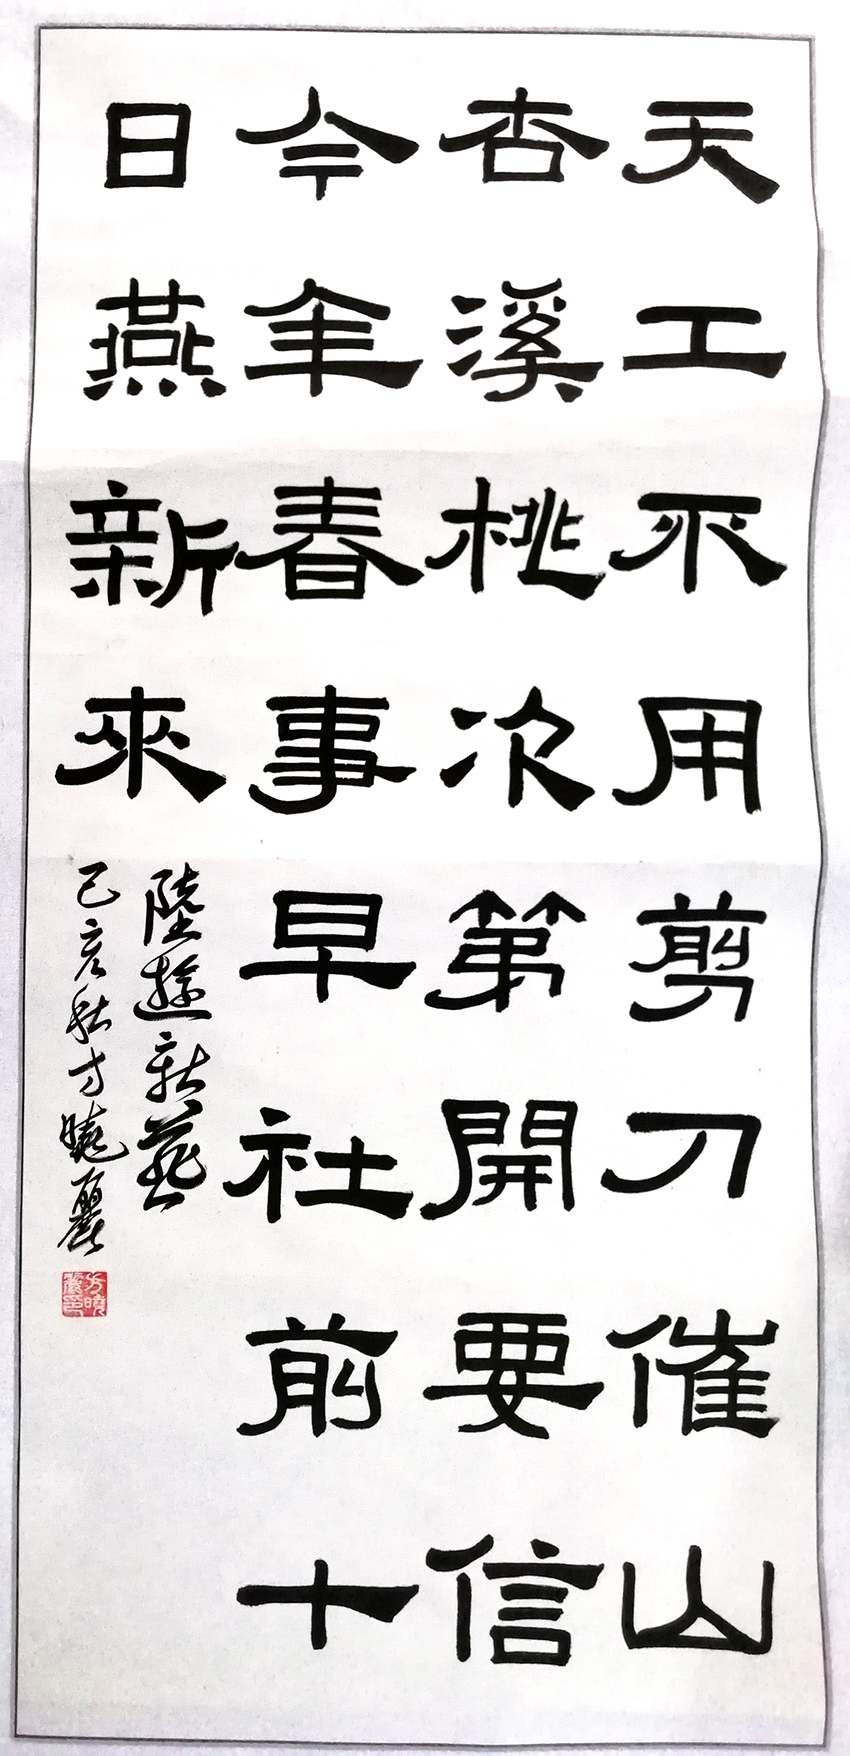 天工不用剪刀催山
杏溪桃次第開要信
今年春事早社前十
日燕新來
陸遊新燕
己亥秋方曉麗
方曉麗印